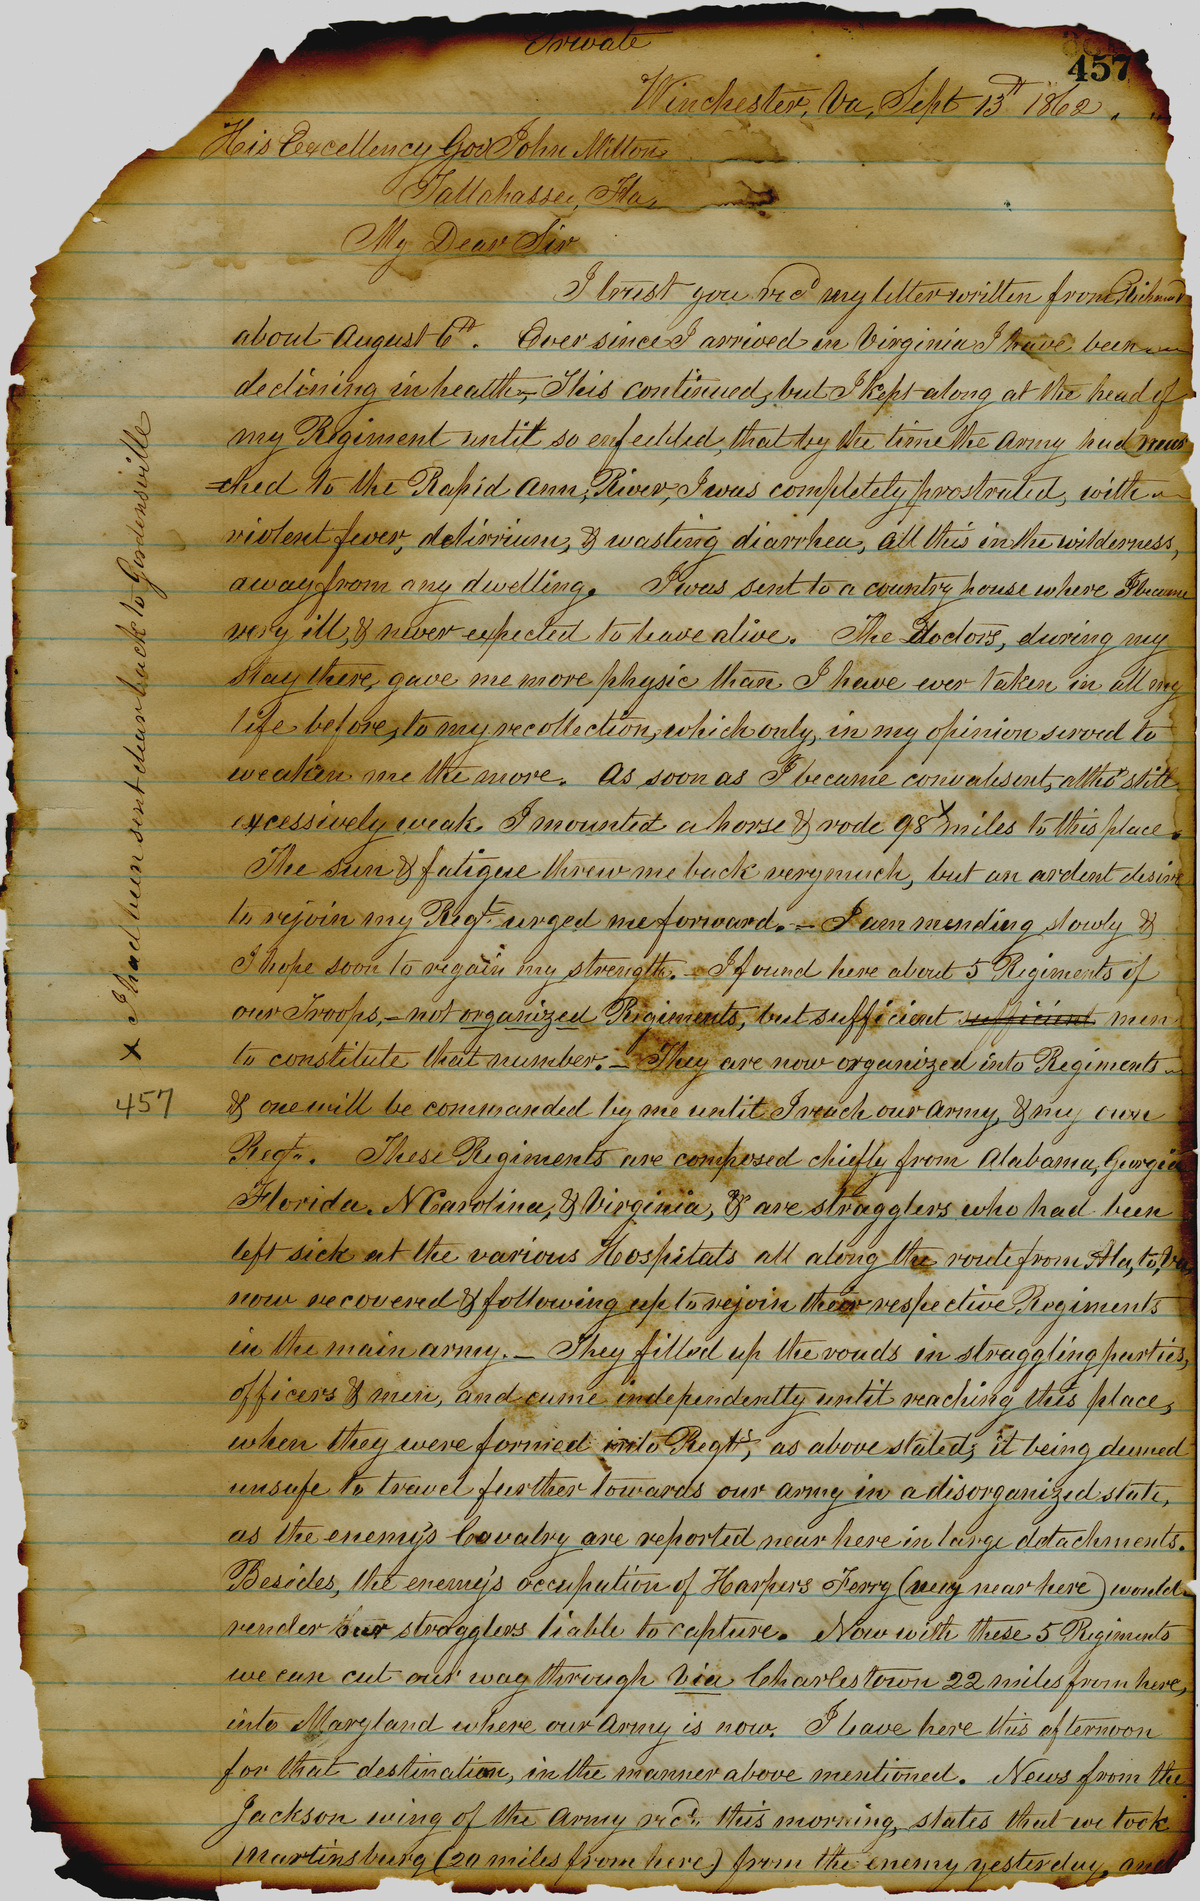 Private
457
Winchester, Va, Sept 13th 1862.
His Excellency Gov John Milton
Tallahassee, Fla,
My Dear Sir
I trust you recd my letter written from Richmond
about August 6th. Ever since I arrived in Virginia I have been
declining in health – This continued, but I kept along at the head of
my Regiment until so enfeebled, that by the time the Army had mar
=ched to the Rapid Ann, River, I was completely prostrated, with
violent fever, delirrium, & wasting diarrhea, all this in the wilderness,
away from any dwelling. I was sent to a country house where I became
very ill, & never expected to leave alive. The Doctors, during my
stay there, gave me more physic than I have ever taken in all my
life before, to my recollection, which only, in my opinion served to
weaken me the more. As soon as I became convalesent, altho' still
excessively weak I mounted a horse & rode 98 x miles to this place.
The sun & fatigue threw me back very much, but an ardent desire
to rejoin my Regt. urged me forward. – I am mending slowly &
I hope soon to regain my strength. – I found here about 5 Regiments of
our Troops, – not organized Regiments, but sufficient sufficient men
to constitute that number. – They are now organized into Regiments
& one will be commanded by me until I reach our Army, & my own
Regt. These Regiments are composed chiefly from Alabama, Georgia
Florida, N Carolina, & Virginia, & are stragglers who had been
left sick at the various Hospitals all along the route from Ala, to, Va,
now recovered & following up to rejoin their respective Regiments
in the main army. – They filled up the roads in straggling parties,
officers & men, and came independently until reaching this place,
when they were formed into Regts, as above stated; it being deemed
unsafe to travel further towards our Army in a disorganized state,
as the enemy's Cavalry are reported near here in large detachments.
Besides, the enemy's occupation of Harpers Ferry (very near here) would
render our stragglers liable to capture. Now with these 5 Regiments
we can cut our way through via Charlestown 22 miles from here,
into Maryland where our Army is now. I leave here this afternoon
for that destination, in the manner above mentioned. News from the
Jackson wing of the Army recd. this morning, states that we took
Martinsburg (20 miles from here) from the enemy yesterday, and
x I had been sent clear back to Gordonsville
457